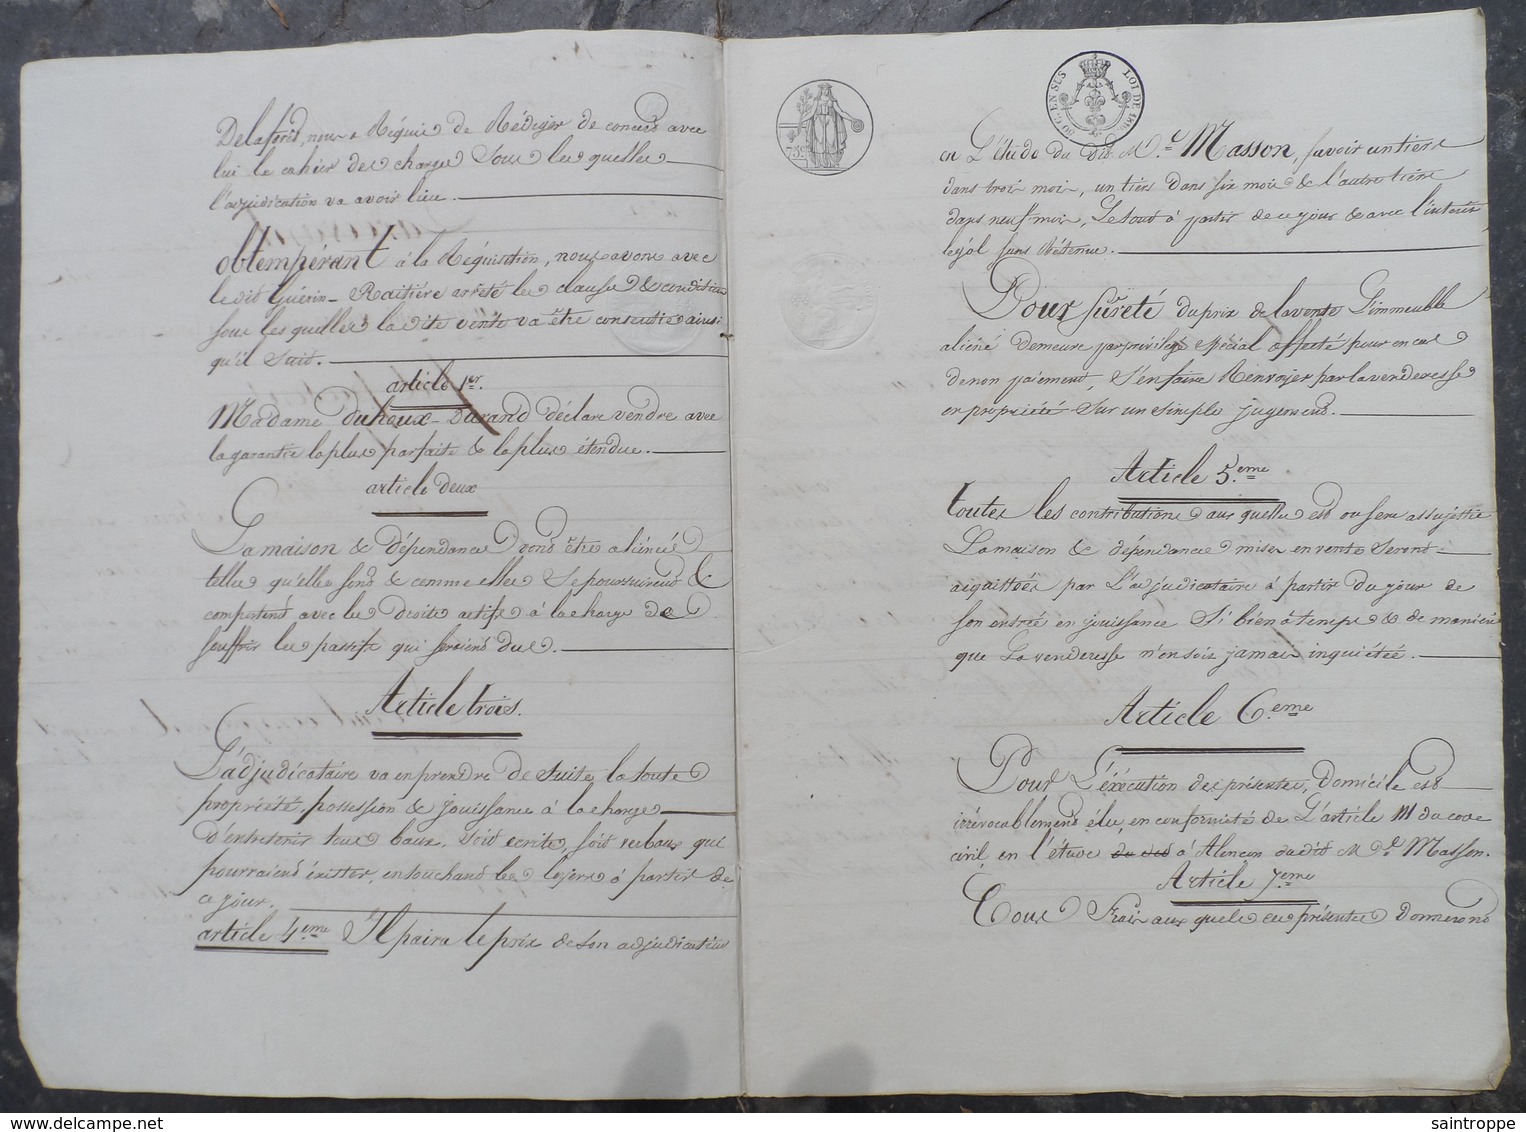 Delaforêt, nous a Réquis de Rédiger de concert avec
lui le cahier des charges sous lesquelles
l'adjudication va avoir lieu.
Obtempérant à la Réquisition, nous avons avec
le dit Guérin-Raitière arrêté les clauses & conditions
sous lesquelles la dite vente va être consentie ainsi
qu'il suit.
article 1er.
Madame duhoux-Durand déclare vendre avec
la garantie la plus parfaite & la plus étendue.
article deux
La maison & dépendances vont être aliénées
telles qu'elles sont & comme elles se poursuivent &
comportent avec les droits actifs & à la charge de
souffrir les passifs qui seraient dus.
Article trois.
L'adjudicataire va en prendre de suite, la toute
propriété, possession & jouissance à la charge
d'entretenir tous baux, soit écrits, soit verbaux qui
pourraient éxister, en touchant les loyers à partir de
ce jour.
article 4.eme Il paira le prix de son adjudication
75c.
EN SUS LOI DE
en L'étude du dit Me. Masson, savoir un tiers
dans trois mois, un tiers dans six mois & l'autre tiers
dans neuf mois, Le tout à partir de ce jour & avec l'intérêt
légal sans Retenue.
Pour sureté du prix de la vente L'immeuble
aliéné demeure par privilège spécial affecté pour en cas
de non paiement, S'en faire Renvoyer par la venderesse
en propriété sur un simple jugement.
Article 5.eme
toutes les contributions aux quelles est ou sera assujettie
La maison & dépendances mises en vente seront
acquittées par L'adjudicataire à partir du jour de
son entrée en jouissance si bien à temps & de manière
que La venderesse n'en soit jamais inquiétée.
Article 6.eme
Pour L'éxécution des présentes, domicile est
irrévocablement élu, en conformité de L'article 111 du code
civil, en l'étude du dit à Alençon du dit Me. Masson.
Article 7.eme
Tous Frais aux quels ces présentes donneront
saintroppe